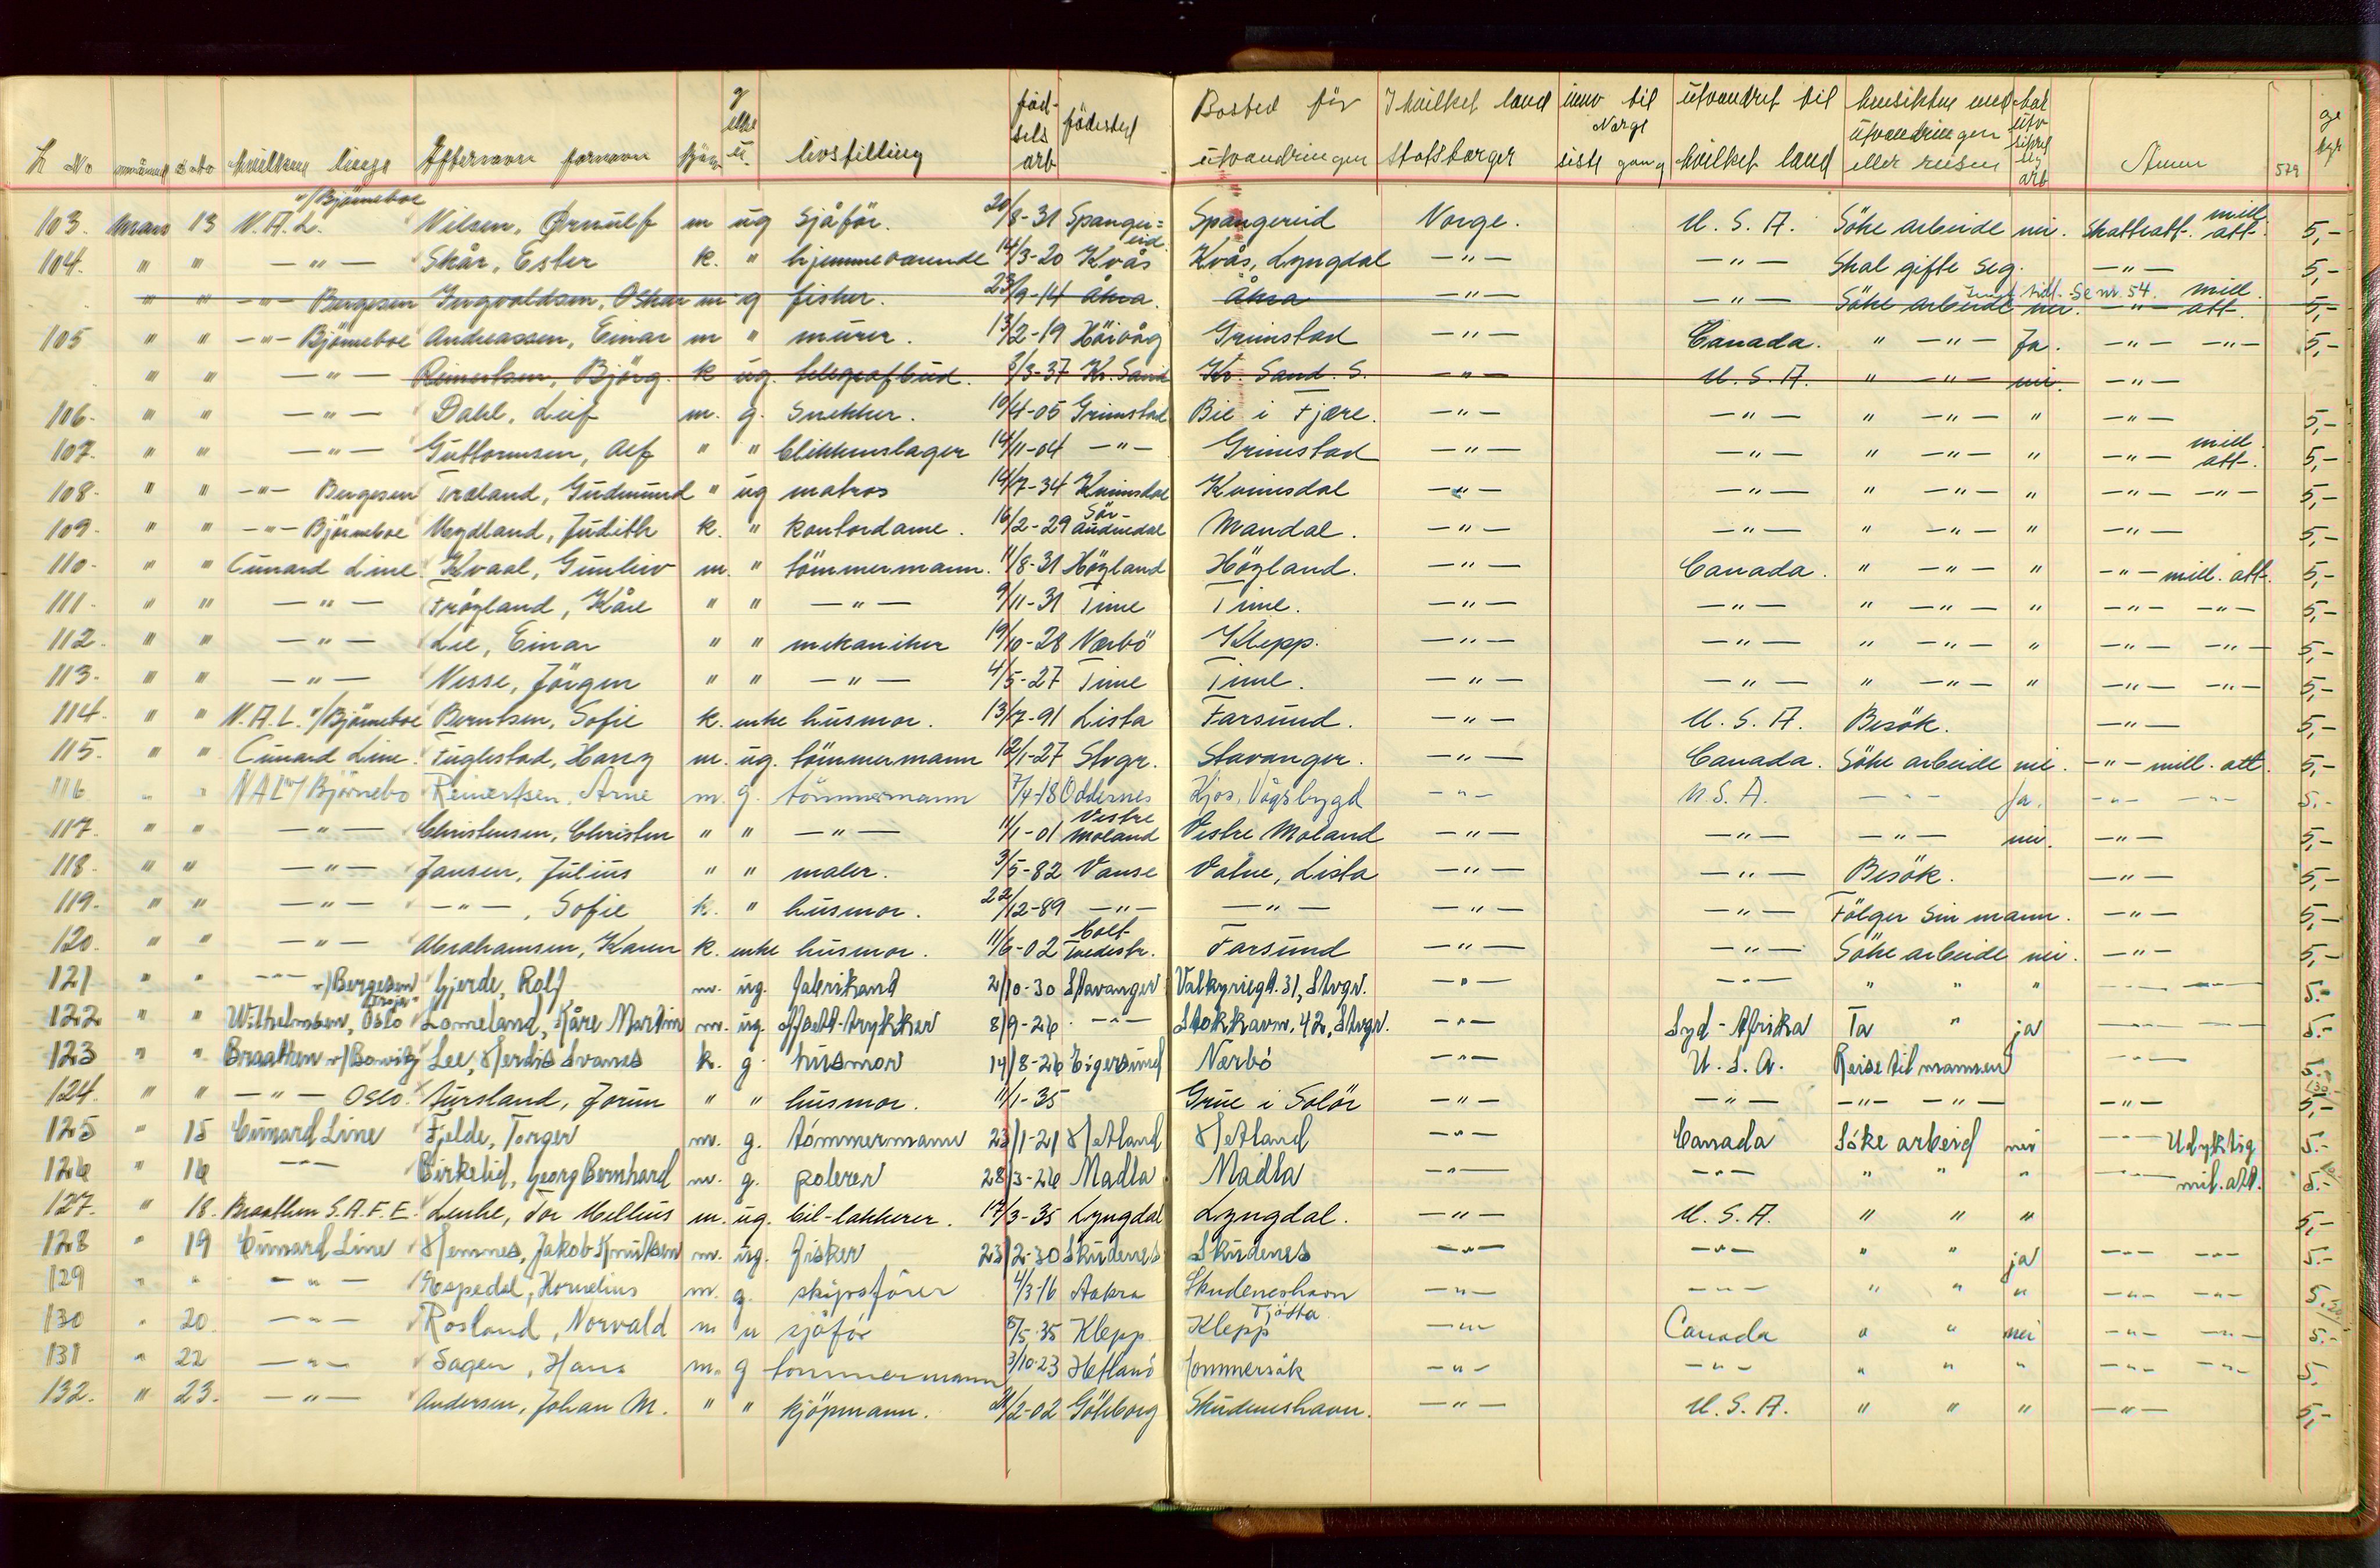 L No måned dato hvilken linje Efternavn fornavn kjön g enke u. livsstilling födsels aar födested Bosted för utvandringen I hvilket land statsborger innv til Norge siste gang utvandret til hvilket land hensikten med utvandringen eller reisen har utv sikret sig arb Anm 579 gebyr
103. Mars 13 N.A.L. v/Bjørneboe Nilsen, Ørnulf m ug sjåför 20/8-31 Spangereid Spangereid Norge. U.S.A. Söke arbeide nei. Skatteatt. mill. att. 5,-
104. " " -"- Skår, Ester k. " hjemmeværende 14/3-20 Kvås Kvås, Lyngdal -"- -"- Skal gifte seg. -"- 5,-
" " -"- Bergesen Ingvaldsen, Oskar m g fisker. 23/9-14 Åkra. Åkra -"- -"- Söke arbeide nei. Se nr. 54. -"- mill. att. 5,-
105 " " -"- Bjørneboe Andreassen, Einar m " murer. 13/2-19 Höivåg Grimstad -"- Canada. " -"- Ja. -"- -"- 5,-
" " -"- Reinertsen, Björg. k ug. telegrafbud. 8/3-37 Kr. Sand Kr. Sand. S. -"- U.S.A. " -"- nei. -"-
106. " " -"- Dahl, Leif m. g. Snekker. 10/4-05 Grimstad Bie i Fjære. -"- -"- " -"- " -"- 5,-
107. " " -"- Guttormsen, Alf " " blikkenslager 14/11-04 -"- Grimstad -"- -"- " -"- " -"- mill. att. 5,-
108. " " -"- Bergesen Træland, Gudmund " ug matros 14/7-34 Kvinesdal Kvinesdal -"- -"- " -"- " -"- -"- 5,-
109. " " -"- Bjørneboe Mydland, Judith k. " kontordame. 16/2-29 Sör-Audnedal Mandal. -"- -"- " -"- " -"- 5,-
110. " " Cunard Line Kvaal, Gunleiv m. " tömmermann. 11/8-31 Högland Högland. -"- Canada. " -"- " -"- mill. att. 5,-
111. " " -"- Frögland, Kåre " " -"- 9/11-31 Time Time. -"- -"- " -"- " -"- -"- 5,-
112. " " -"- Lie, Einar " " mekaniker 19/10-28 Nærbö Klepp. -"- -"- " -"- " -"- -"- 5,-
113. " " -"- Nesse, Jörgen " " -"- 4/5-27 Time Time. -"- -"- " -"- " -"- -"- 5,-
114. " " N.A.L. v/Bjørneboe Berntsen, Sofie k. enke husmor. 13/7-91 Lista Farsund. -"- U.S.A. Besök. -"- 5,-
115. " " Cunard Line. Fuglestad, Harry m. ug. tömmermann 12/1-27 Stvgr. Stavanger. -"- Canada. Söke arbeide nei. -"- mill. att. 5,-
116 " " NAL v/Bjørnebo Reinertsen, Arne m. g. tömmermann 7/4-18 Oddernes Kjos, Vågsbygd -"- U.S.A. -"- Ja. -"- -"- 5.-
117. " " -"- Christensen, Christen " " -"- 11/1-01 Vestre Moland Vestre Moland -"- -"- -"- nei. -"- 5,-
118. " " -"- Jansen, Julius " " maler. 3/5-82 Vanse Valne, Lista -"- -"- Besök. -"- 5,-
119. " " -"- -"-, Sofie k. " husmor. 22/12-89 -"- -"- -"- -"- Fölger Sin mann. -"- 5,-
120. " " -"- Abrahamsen, Karen k. enke husmor. 11/6-02 Holt Tvedestr. Farsund -"- -"- Söke arbeide nei. -"- 5,-
121 " " -"- v/Bergesen Gjerde, Rolf m. ug. fabrikant 2/10-30 Stavanger Valkyriegt. 31, Stvgr. -"- -"- " " " -"- -"- 5.-
122 " " Wilhelmsen, Oslo "Troja" Lomeland, Kåre Martin m. ug. offsett-trykker 8/9-26 -"- Stokkavn. 42, Stvgr. -"- Syd-Afrika Ta " ja -"- -"- 5.-
123 " " Braathen v/Bowitz Lee, Herdis Svanes k. g. husmor 14/8-26 Eigersund Nærbö -"- U.S.A. Reise til mannen -"- 5.-
124. " " -"- Oslo. Aursland, Jorun " " husmor. 11/1-35 Grue i Solör -"- -"- -"- -"- -"- 130 5,-
125 " 15 Cunard Line Fjelde, Torger m. g. tömmermann 23/1-21 Hetland Hetland -"- Canada Söke arbeid nei -"- Udyktig 5.-
126 " 16 -"- Birkelid, Georg Bernhard m. g. polerer 28/3-26 Madla Madla -"- -"- " " " -"- mil. att. 5.-
127. " 18. Braathen S.A.F.E. Lenhe, Tor Mellius m. ug. bil-lakkerer. 17/3-35 Lyngdal Lyngdal. -"- U.S.A. " " " 5,-
128 " 19 Cunard Line Hemnes, Jakob Knutsen m. ug. fisker 23/2-30 Skudenes Skudenes -"- -"- " " ja -"- -"- 5.-
129 " " -"- Espedal, Kornelius m. g. skipsförer 4/3-16 Aakra Skudeneshavn -"- -"- " " " -"- -"- 5.-
130 " 20. -"- Rosland, Norvald m u sjåför 8/5-35 Klepp. Klepp Tjötta -"- Canada " " nei -"- -"- 5.-
131 " 22 -"- Sagen, Hans m. g tommermann 3/10-23 Hetland Hommersåk -"- -"- " " " -"- -"- 5.
132. " 23. -"- Andersen, Johan M. " " kjöpmann. 21/2-02 Göteborg Skudeneshavn. -"- U.S.A. " " " -"- 5,-